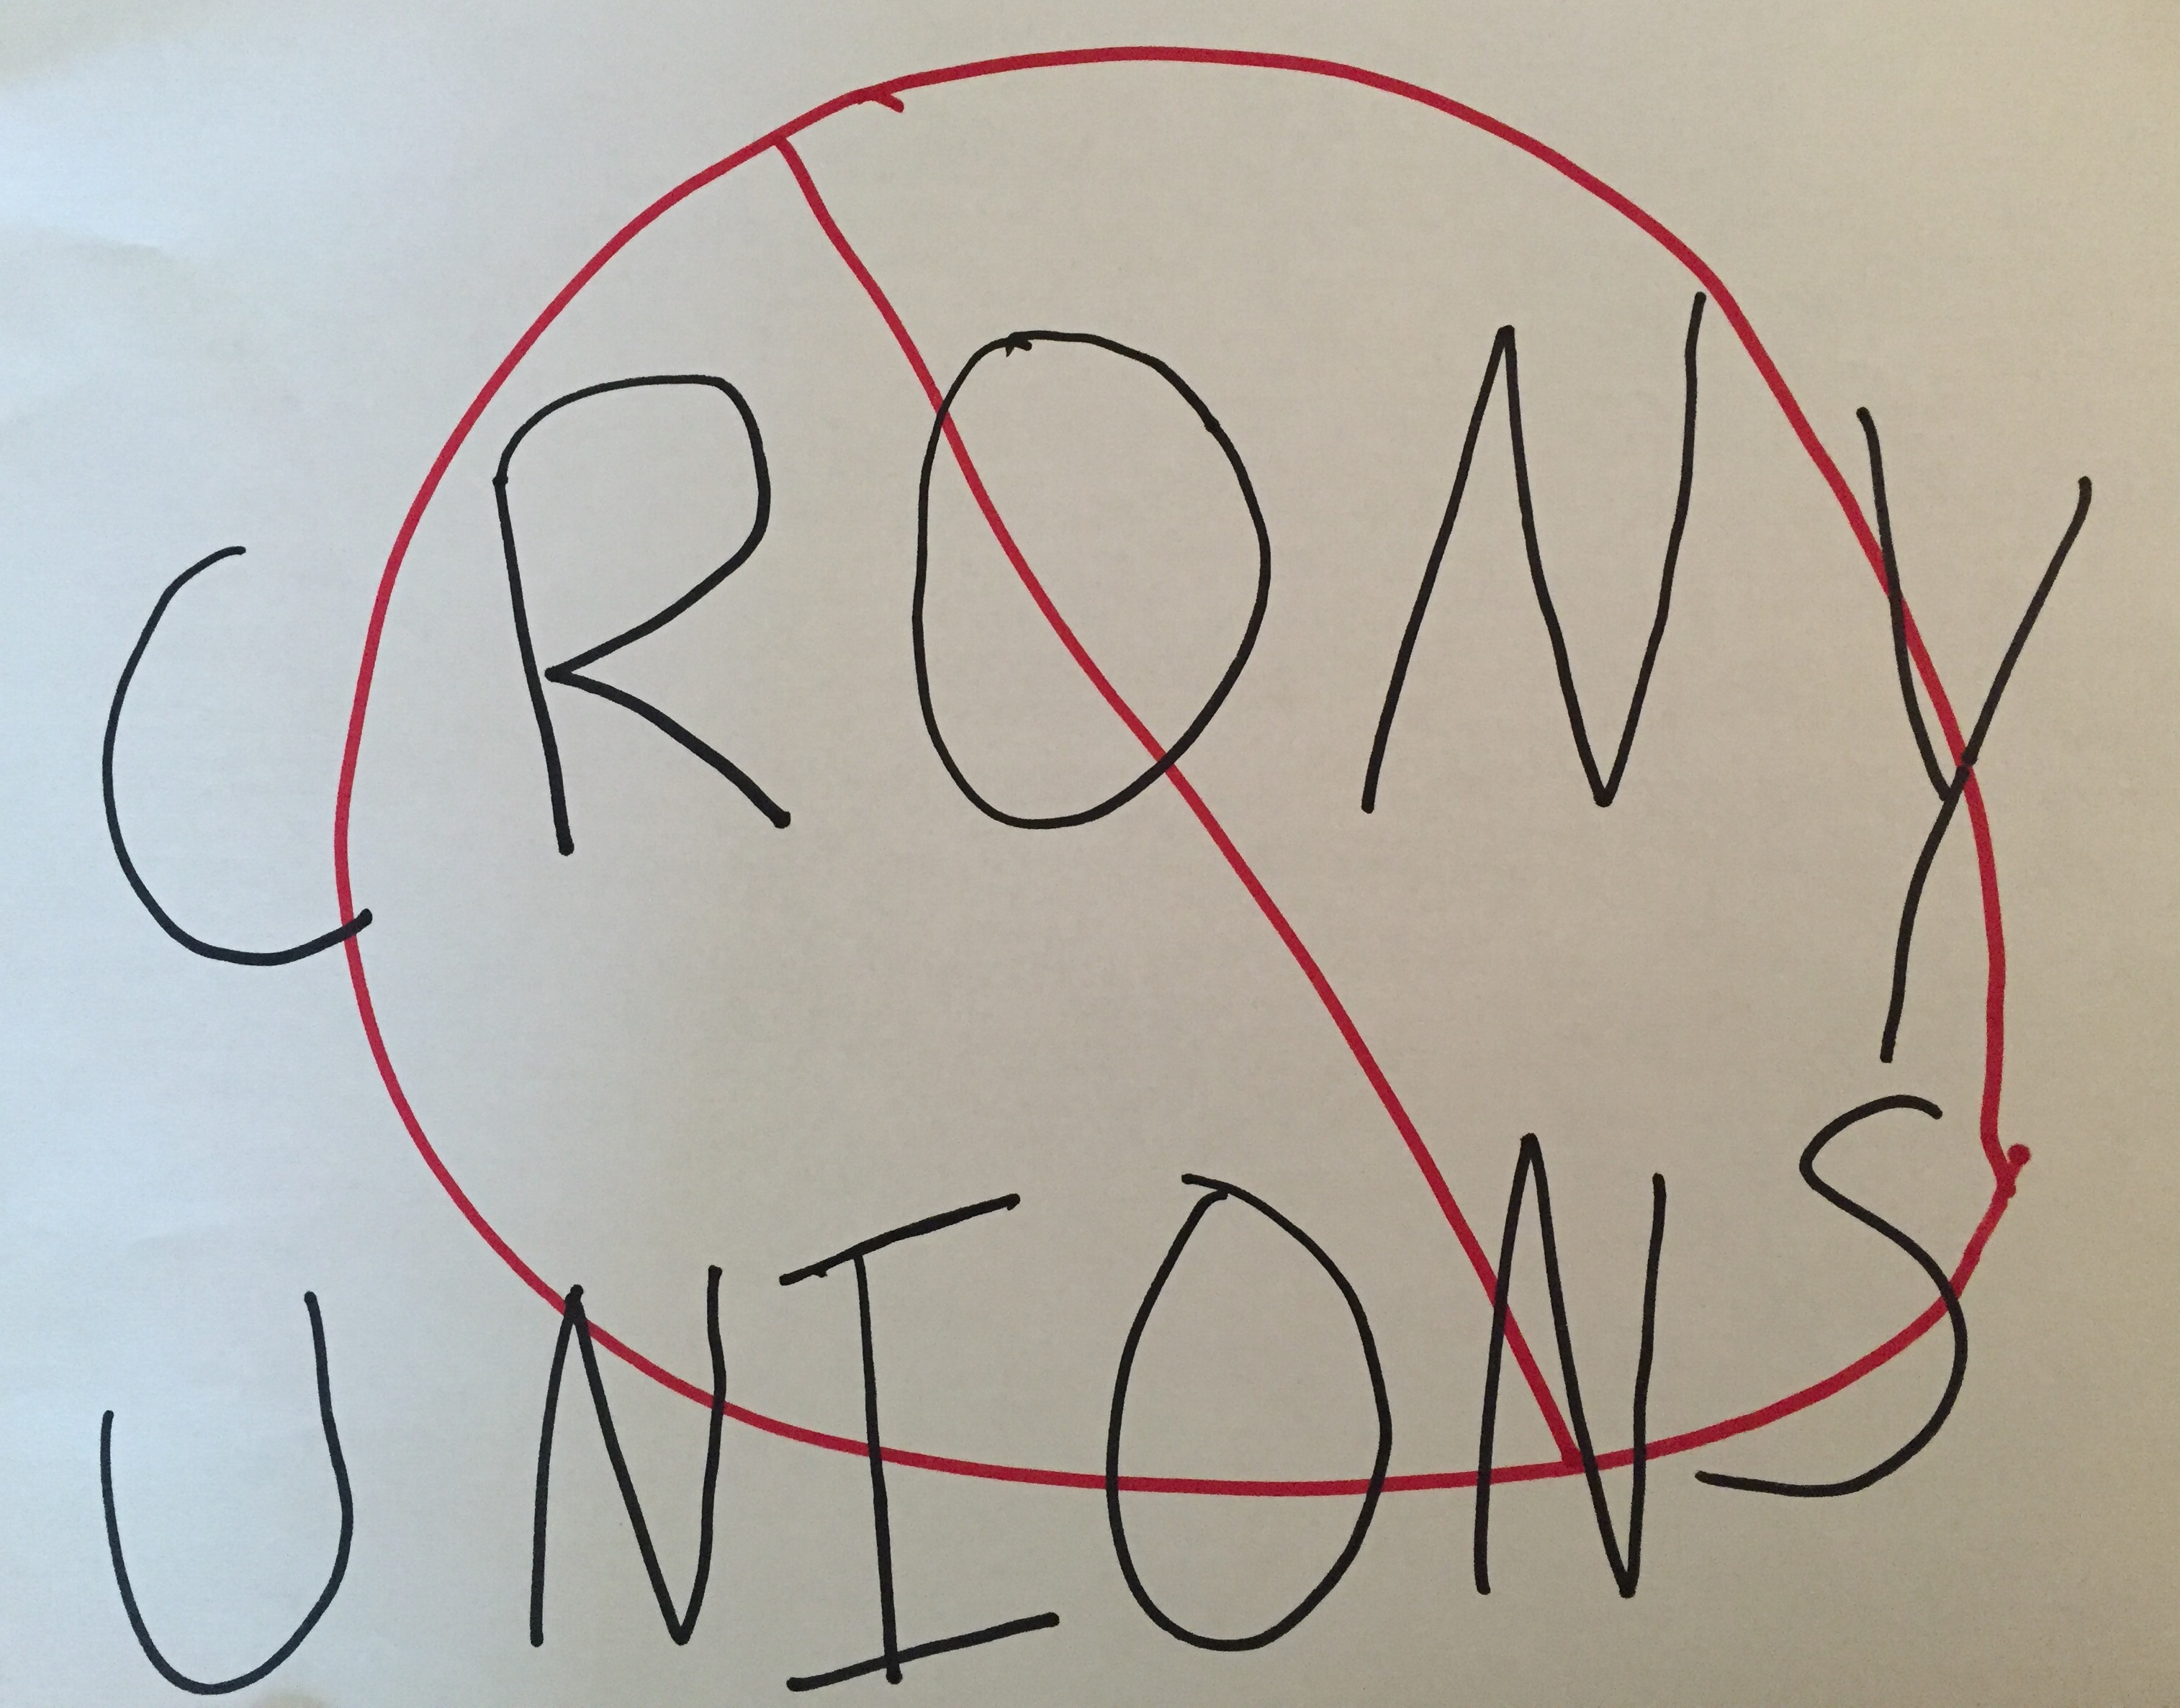 CRONY
UNIONS